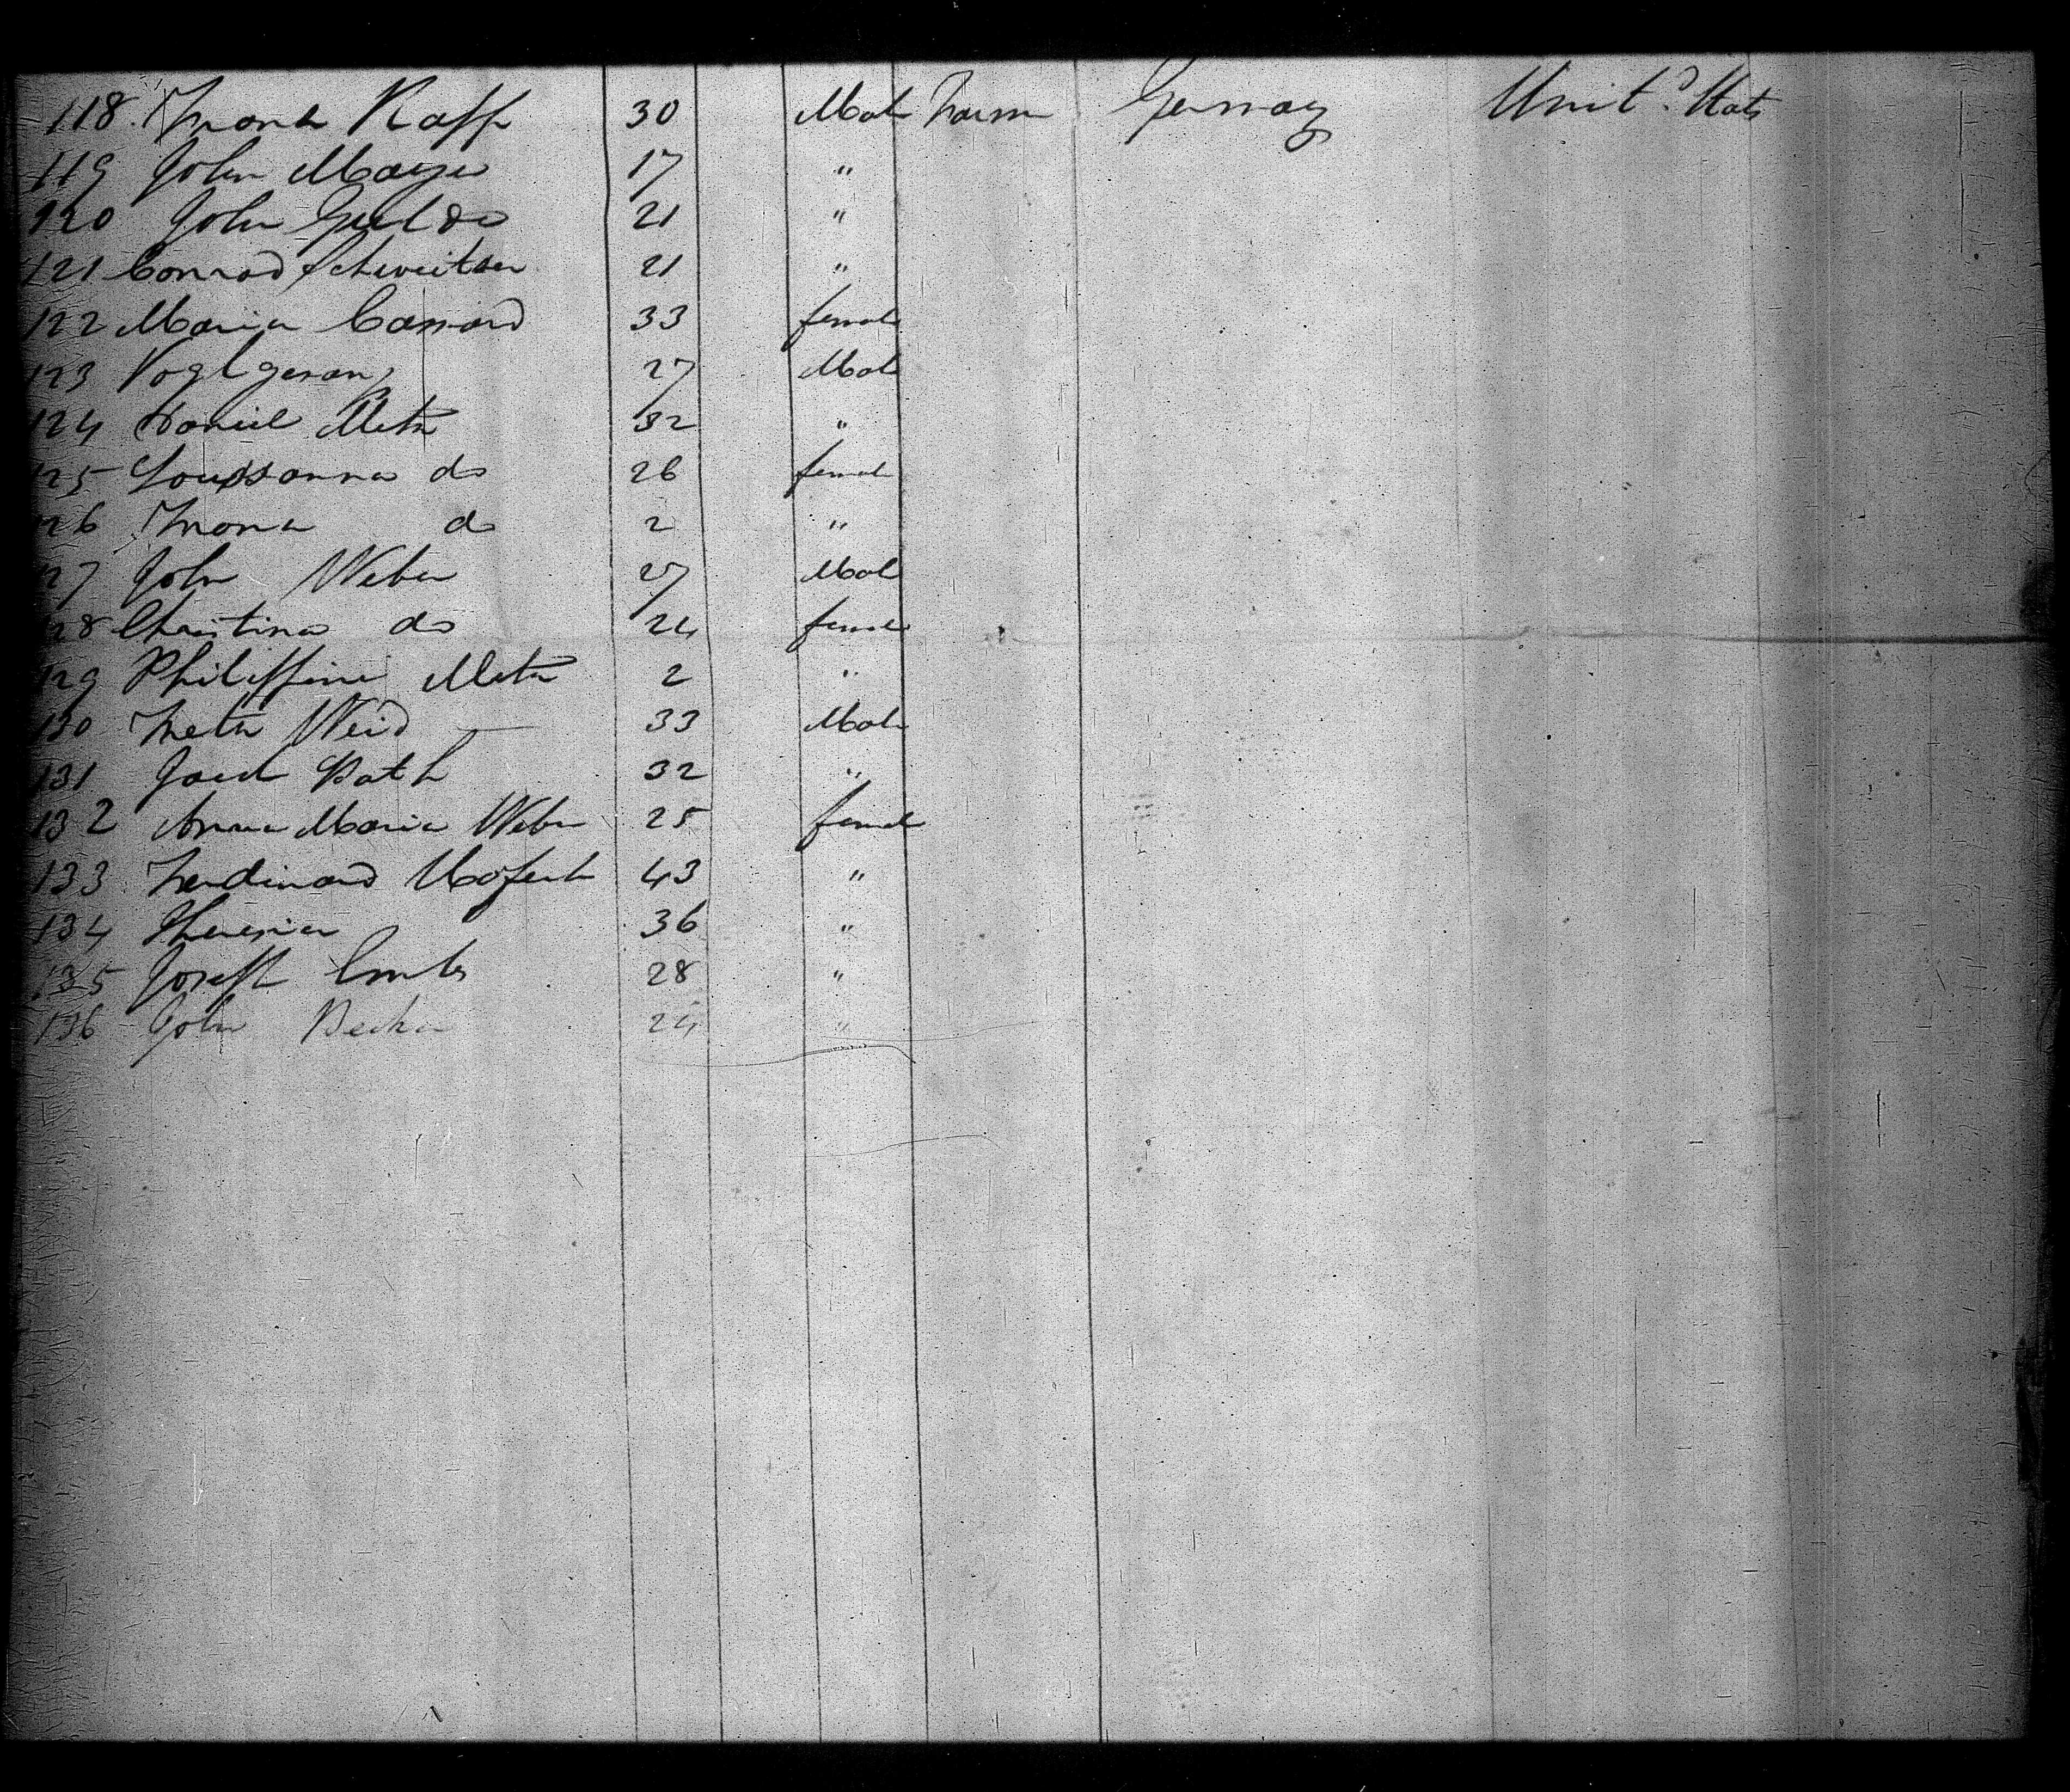 118 Frank Kapp 30 Male Farm Germay Unitd Stats
119 John Mayer 17 "
120 John 21 "
121 Conrad Schweitzer 21 "
122 Maria 33 female
123 27 Male
124 Daniel Metz 32 "
125 do 26 female
126 do 2 "
127 John Weber 27 Male
128 Christina do 24 female
129 Philippine Metz 2 "
130 Weid 33 Male
131 32 "
132 Anna Maria Weber 25 female
133 Ferdinand 43 "
134 Theresia 36 "
135 Joseph 28 "
136 John Becker 24 "